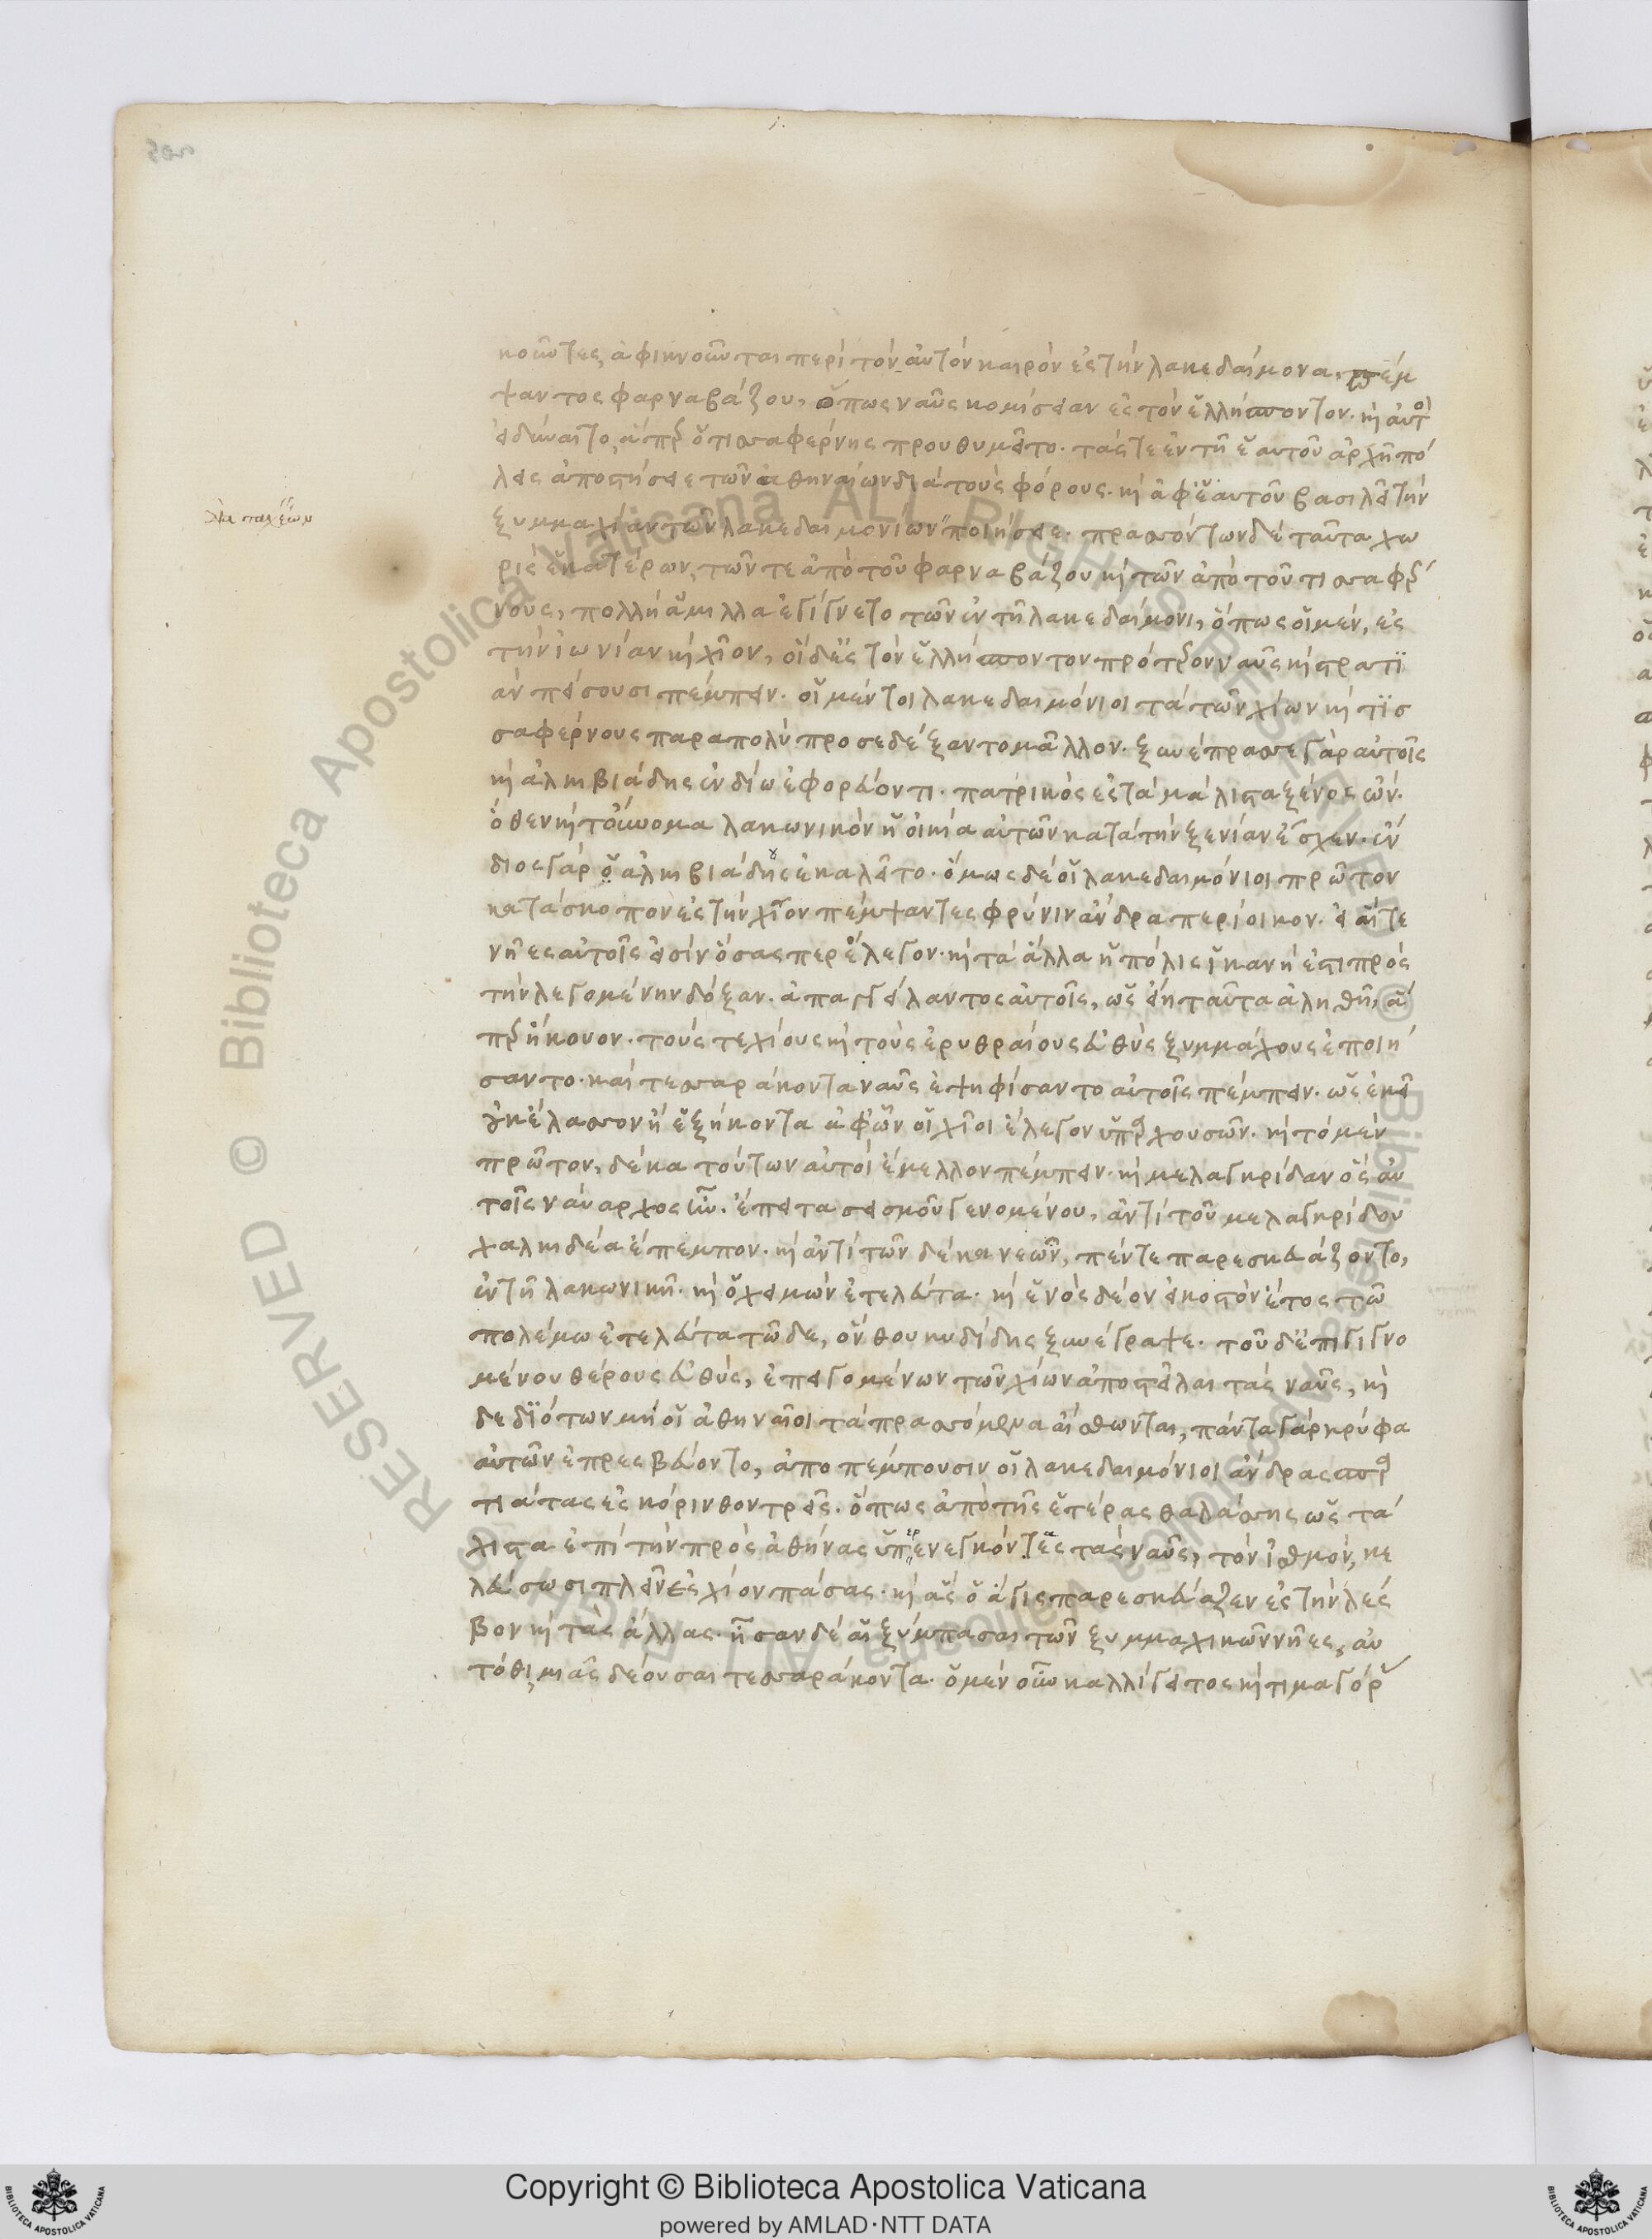 κοῦντες ἀφικνοῦνται περὶ τὸν αὐτὸν καιρὸν ἐς τὴν λακεδαίμονα, πέμ
ψαντος φαρναβάζου, ὅπως ναῦς κομίσειαν ἐς τὸν ἑλλήσποντον. κ̀ αὐτὸ
εἰ δύναιτο, ἅπερ ὁ τισσαφέρνης προυθυμεῖτο. τάς τε ἐν τῆ ἑαυτοῦ ἀρχῆ πό
λεις ἀποστήσειε τῶν ἀθηναίων διὰ τοὺς φόρους. κ̀ ἀφ' ἑαυτοῦ βασιλεῖ τὴν
ξυμμαχίαν τῶν λακεδαιμονίων ποιήσειε. πρασσόντων δὲ ταῦτα χω
ρὶς ἑκατέρων, τῶν τε ἀπὸ τοῦ φαρναβάζου κ̀ τῶν ἀπὸ τοῦ τισσαφέρ
νους, πολλὴ ἅμιλλα ἐγίγνετο τῶν ἐν τῆ λακεδαίμονι, ὅπως οἱ μὲν, ἐς
τὴν ἰωνίαν κ̀ χῖον, οἱ δ' ἐς τὸν ἑλλήσποντον πρότερον ναῦς κ̀ στρατϊ
ὰν πείσουσι πέμπειν. οἱ μέντοι λακεδαιμόνιοι τὰ τῶν χίων κ̀ τϊσ
σαφέρνους παραπολὺ προσεδέξαντο μᾶλλον. ξυνέπρασσε γὰρ αὐτοῖς
κ̀ ἀλκιβιάδης ἐνδίω ἐφορεύοντι. πατρικὸς ἐς τὰ μάλιστα ξένος ὤν.
ὅθεν κ̀ τοὔνομα λακωνικὸν ἡ οἰκία αὐτῶν κατὰ τὴν ξενίαν ἔσχεν. ἔν
διος γὰρ ὁ ἀλκιβιάδης ἐκαλεῖτο. ὅμως δὲ οἱ λακεδαιμόνιοι πρῶτον
κατάσκοπον ἐς τὴν χῖον πέμψαντες φρύνιν ἄνδρα περίοικον. εἰ αἵ τε
νῆες αὐτοῖς εἰσὶν ὅσας περ ἔλεγον. κ̀ τὰ ἄλλα ἡ πόλις ἱκανή ἐστι πρὸς
τὴν λεγομένην δόξαν. ἀπαγγείλαντος αὐτοῖς, ὡς εἴη ταῦτα ἀληθῆ, ἅ
περ ἤκουον. τούς τε χίους κ̀ τοὺς ἐρυθραίους εὐθὺς ξυμμάχους ἐποιή
σαντο. καὶ τεσσαράκοντα ναῦς ἐψηφίσαντο αὐτοῖς πέμπειν. ὡς ἐκεῖ
οὐκ ἔλασσον ἢ ἑξήκοντα ἀφ' ὧν οἱ χῖοι ἔλεγον ὑπαρχουσῶν. κ̀ τὸ μὲν
πρῶτον, δέκα τούτων αὐτοὶ ἔμελλον πέμπειν. κ̀ μελαγκρίδαν ὃς αὐ
τοῖς ναύαρχος ἦν. ἔπειτα σεισμοῦ γενομένου, ἀντὶ τοῦ μελαγκρίδου
χαλκιδέα ἔπεμπον. κ̀ ἀντὶ τῶν δέκα νεῶν, πέντε παρεσκευάζοντο,
ἐν τῆ λακωνικῆ. κ̀ ὁ χειμὼν ἐτελεύτα. κ̀ ἑνὸς δέον εἰκοστὸν ἔτος τῶ
πολέμω ἐτελεύτα τῶδε, ὃν θουκυδίδης ξυνέγραψε. τοῦ δ' ἐπιγιγνο
μένου θέρους εὐθὺς, ἐπειγομένων τῶν χίων ἀποστεῖλαι τὰς ναῦς, κ̀
δεδϊότων μὴ οἱ ἀθηναῖοι τὰ πρασσόμενα αἴσθωνται, πάντα γὰρ κρύφα
αὐτῶν ἐπρεσβεύοντο, ἀποπέμπουσιν οἱ λακεδαιμόνιοι ἄνδρας σπαρ
τιάτας ἐς κόρινθον τρεῖς. ὅπως ἀπὸ τῆς ἑτέρας θαλάσσης ὡς τά
χιστα ἐπὶ τὴν πρὸς ἀθήνας ὑπερενεγκόντες τὰς ναῦς, τὸν ἰσθμὸν, κε
λεύσωσι πλεῖν ἐς χίον πάσας. κ̀ ἃς ὁ ἆγις παρεσκεύαζεν ἐς τὴν λέσ
βον κ̀ τὰς ἄλλας. ἦσαν δὲ αἱ ξύμπασαι τῶν ξυμμαχικῶν νῆες, αὐ
τόθι, μιᾶς δέουσαι τεσσαράκοντα. ὁ μὲν οὖν καλλίγειτος κ̀ τιμαγόρας